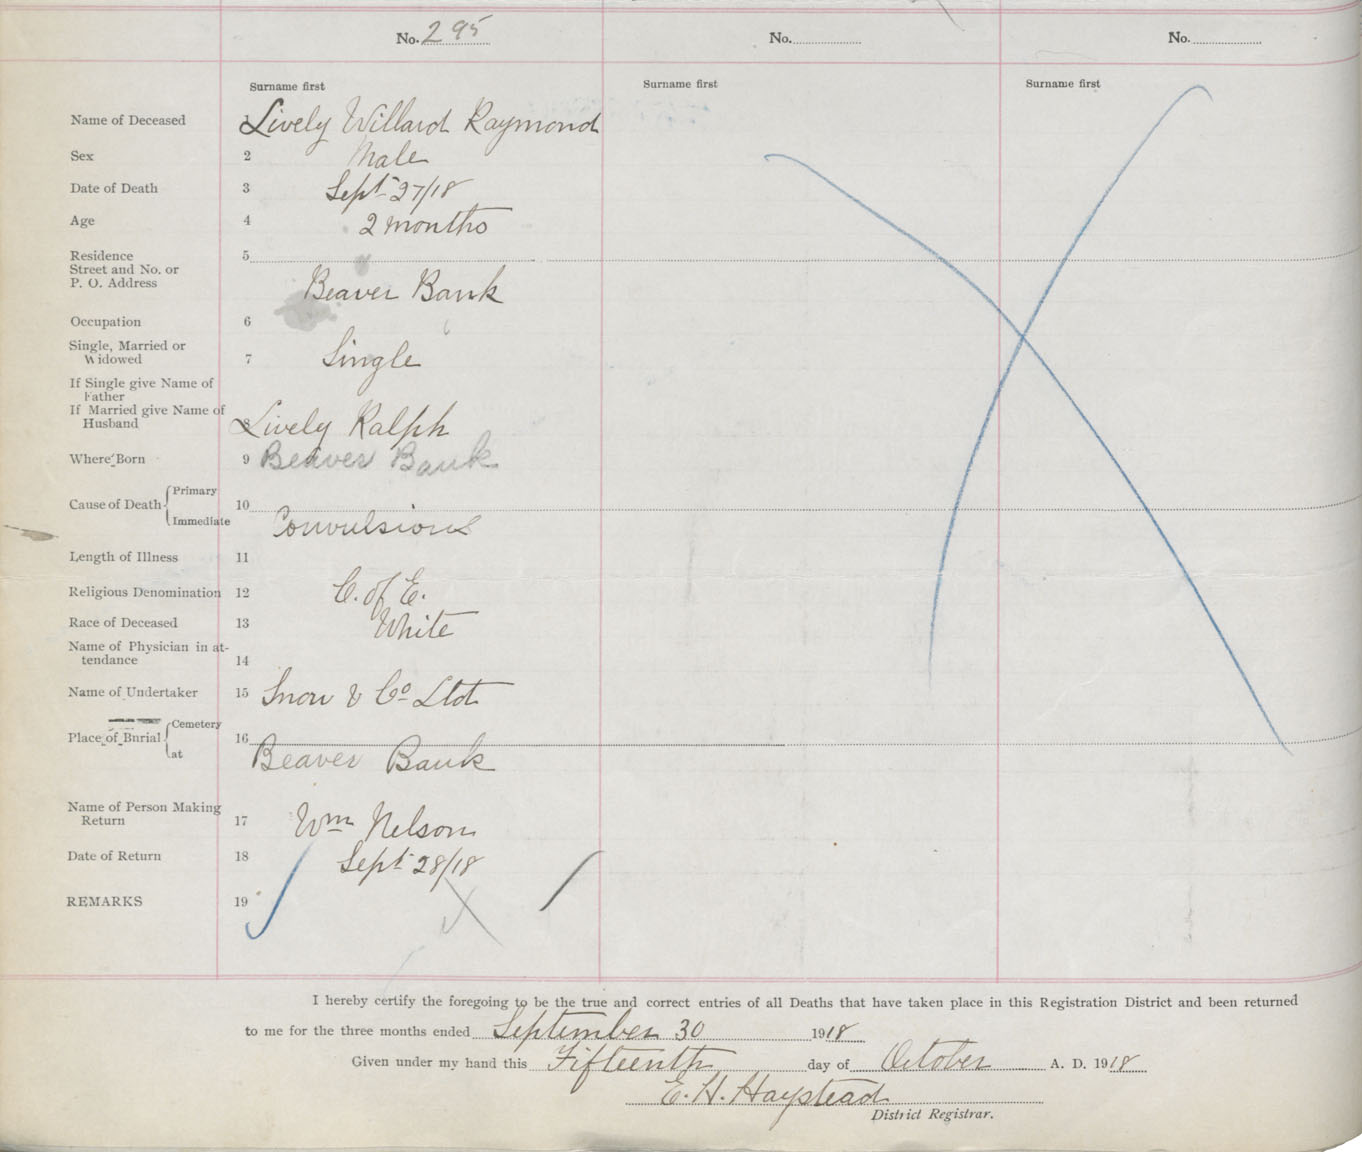 No. 295 No. No.
Surname first Surname first Surname first
Name of Deceased 1 Lively Willard Raymond
Sex 2 Male
Date of Death 3 Sept 27/18
Age 4 2 months
Residence 5
Street and No. or
P. O. Address Beaver Bank
Occupation 6
Single, Married or
Widowed 7 Single
If Single give Name of
Father
If Married give Name of
Husband 8 Lively Ralph
Where Born 9 Beaver Bank
Cause of Death Primary 10
Immediate Convulsions
Length of Illness 11
Religious Denomination 12 C. of E.
Race of Deceased 13 White
Name of Physician in at-
tendance 14
Name of Undertaker 15 Snow & Co Ltd
Place of Burial Cemetery 16
at Beaver Bank
Name of Person Making
Return 17 Wm Nelson
Date of Return 18 Sept 28/18
REMARKS 19
I hereby certify the foregoing to be the true and correct entries of all Deaths that have taken place in this Registration District and been returned
to me for the three months ended September 30 1918
Given under my hand this Fifteenth day of October A. D. 1918
E. H. Haystead
District Registrar.